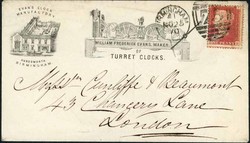 EVANS CLOCK
MANUFACTORY
HANDSWORTH
BIRMINGHAM
WILLIAM FREDERICK EVANS, MAKER
OF
TURRET CLOCKS.
BIRMINGHAM
NO 25
70
Messrs Cunliffe & Beaumont
43 Chancery Lane
London